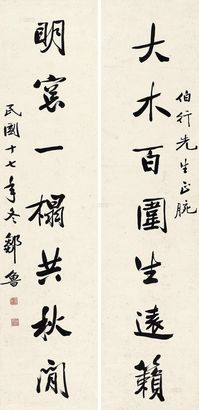 伯行先生正腕
大木百圍生遠籟
明窗一榻共秋閒
民國十七年冬鄒魯